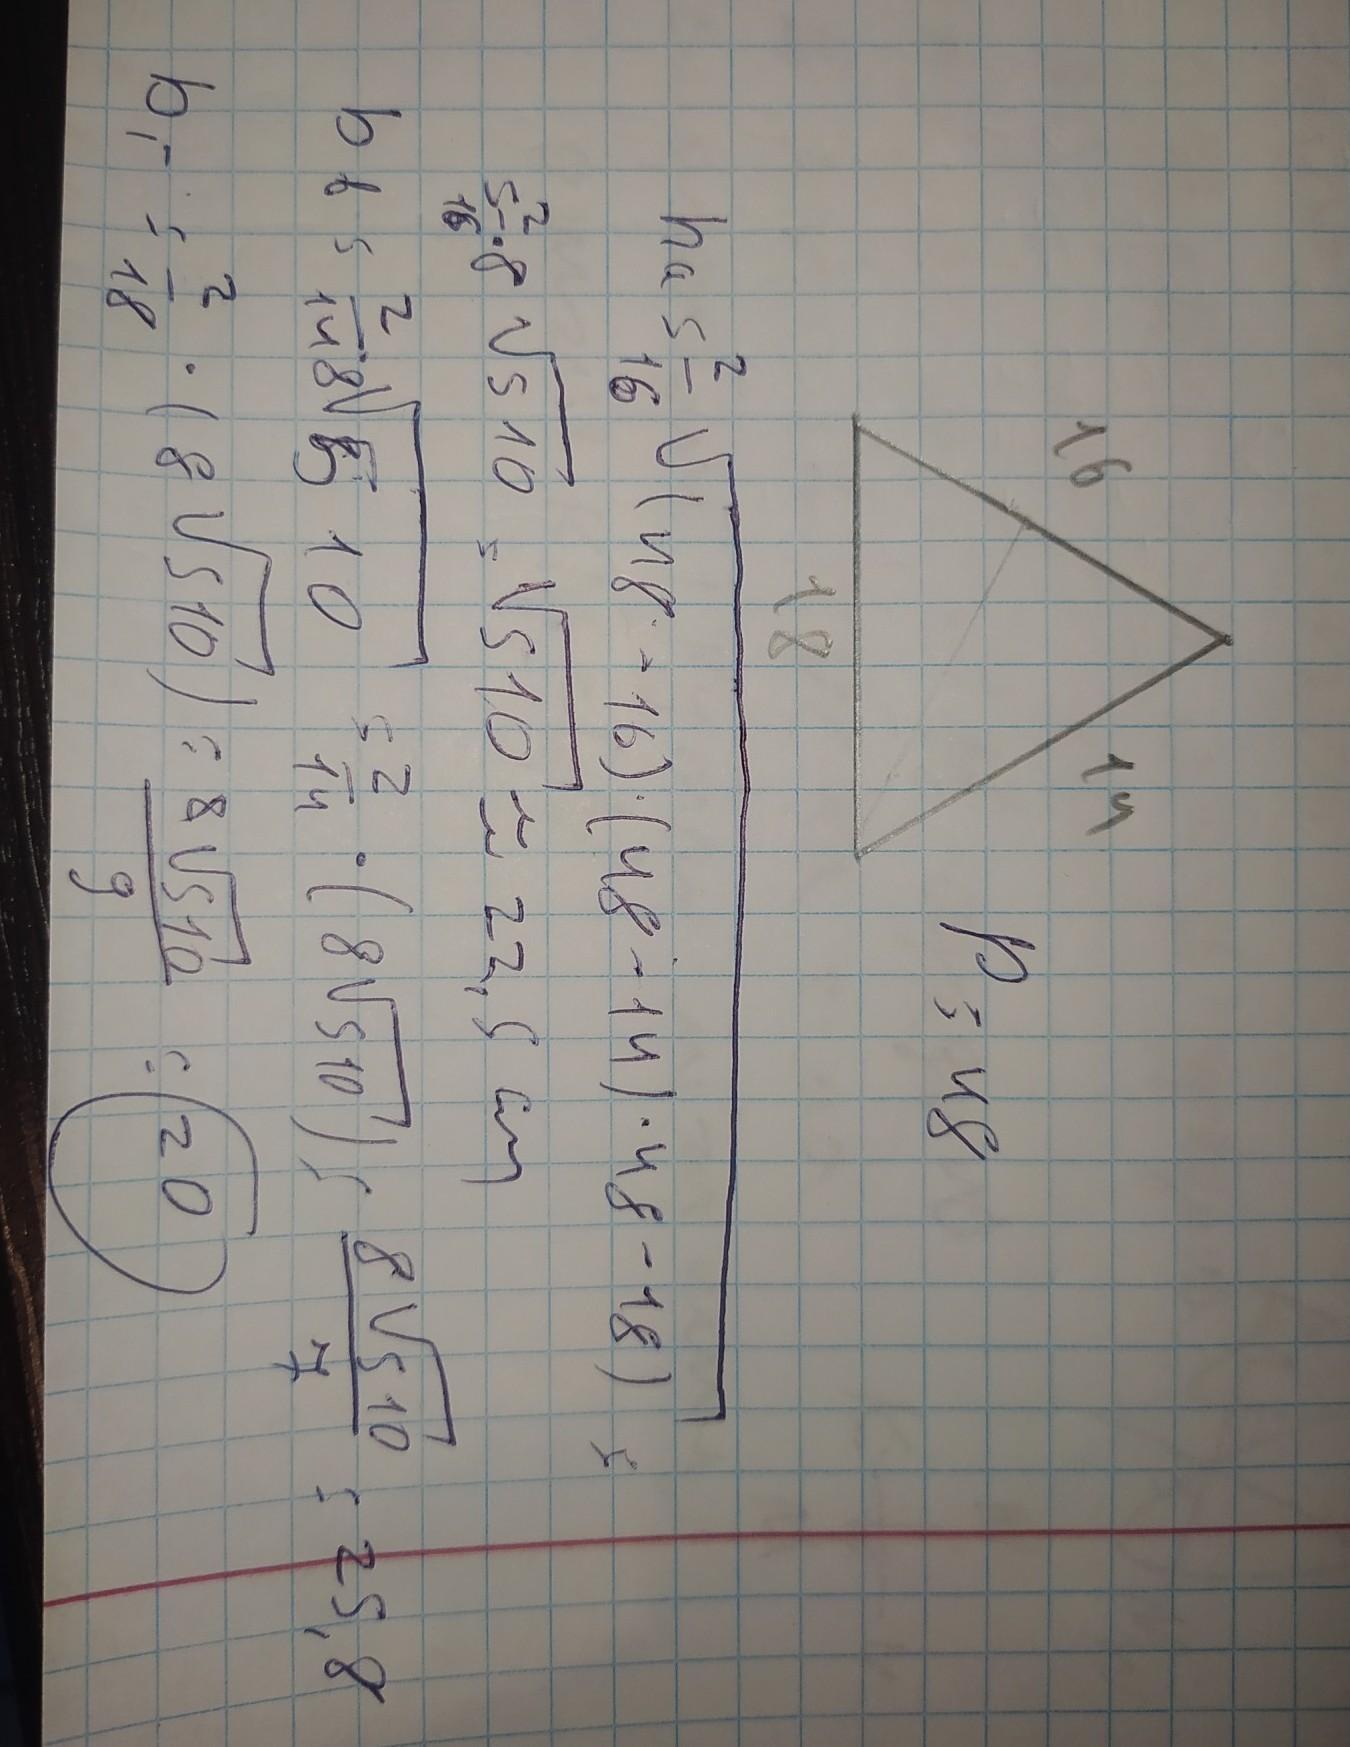 16
14
18
p = 48
ha = 2/16 √(48-16)·(48-14)·48-18) =
= 2/16 · 8√510 = √510 ≈ 22,5 cm
h b = 2/14 · 8√510 = 2/14 · (8√510) = 8√510/7 = 25,8
h = 2/18 · (8√510) = 8√510/9 = 20